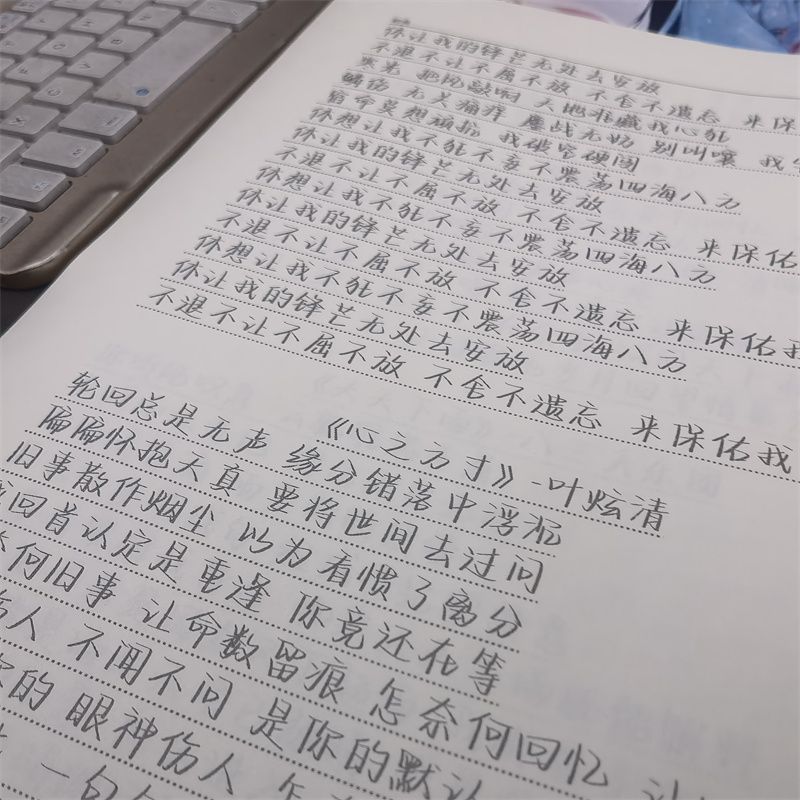 休让我的锋芒无处去安放
不退不让不屈不放 不舍不遗忘 来保
把风敲响 天地难藏我心死
伤 无关痛痒 鏖战无妨 别叫嚷 我
宿命莫想 我破空破固
休想让我不死不妄不震荡四海八方
休让我的锋芒无处去安放
不退不让不屈不放 不舍不遗忘 来保佑
休想让我不死不妄不震荡四海八方
休让我的锋芒无处去安放
不退不让不屈不放 不舍不遗忘 来保佑我
休想让我不死不妄不震荡四海八方
休让我的锋芒无处去安放
不退不让不屈不放 不舍不遗忘 来保佑我
《心之方寸》-叶炫清
轮回总是无声 缘分错落中浮沉
偏偏怀抱天真 要将世间去过问
旧事散作烟尘 以为看惯了离分
回首认定是重逢 你竟还在等
奈何旧事 让命数留痕 怎奈何回忆 让
伤人 不闻不问 是你的默认
你的 眼神伤人 怎
一句